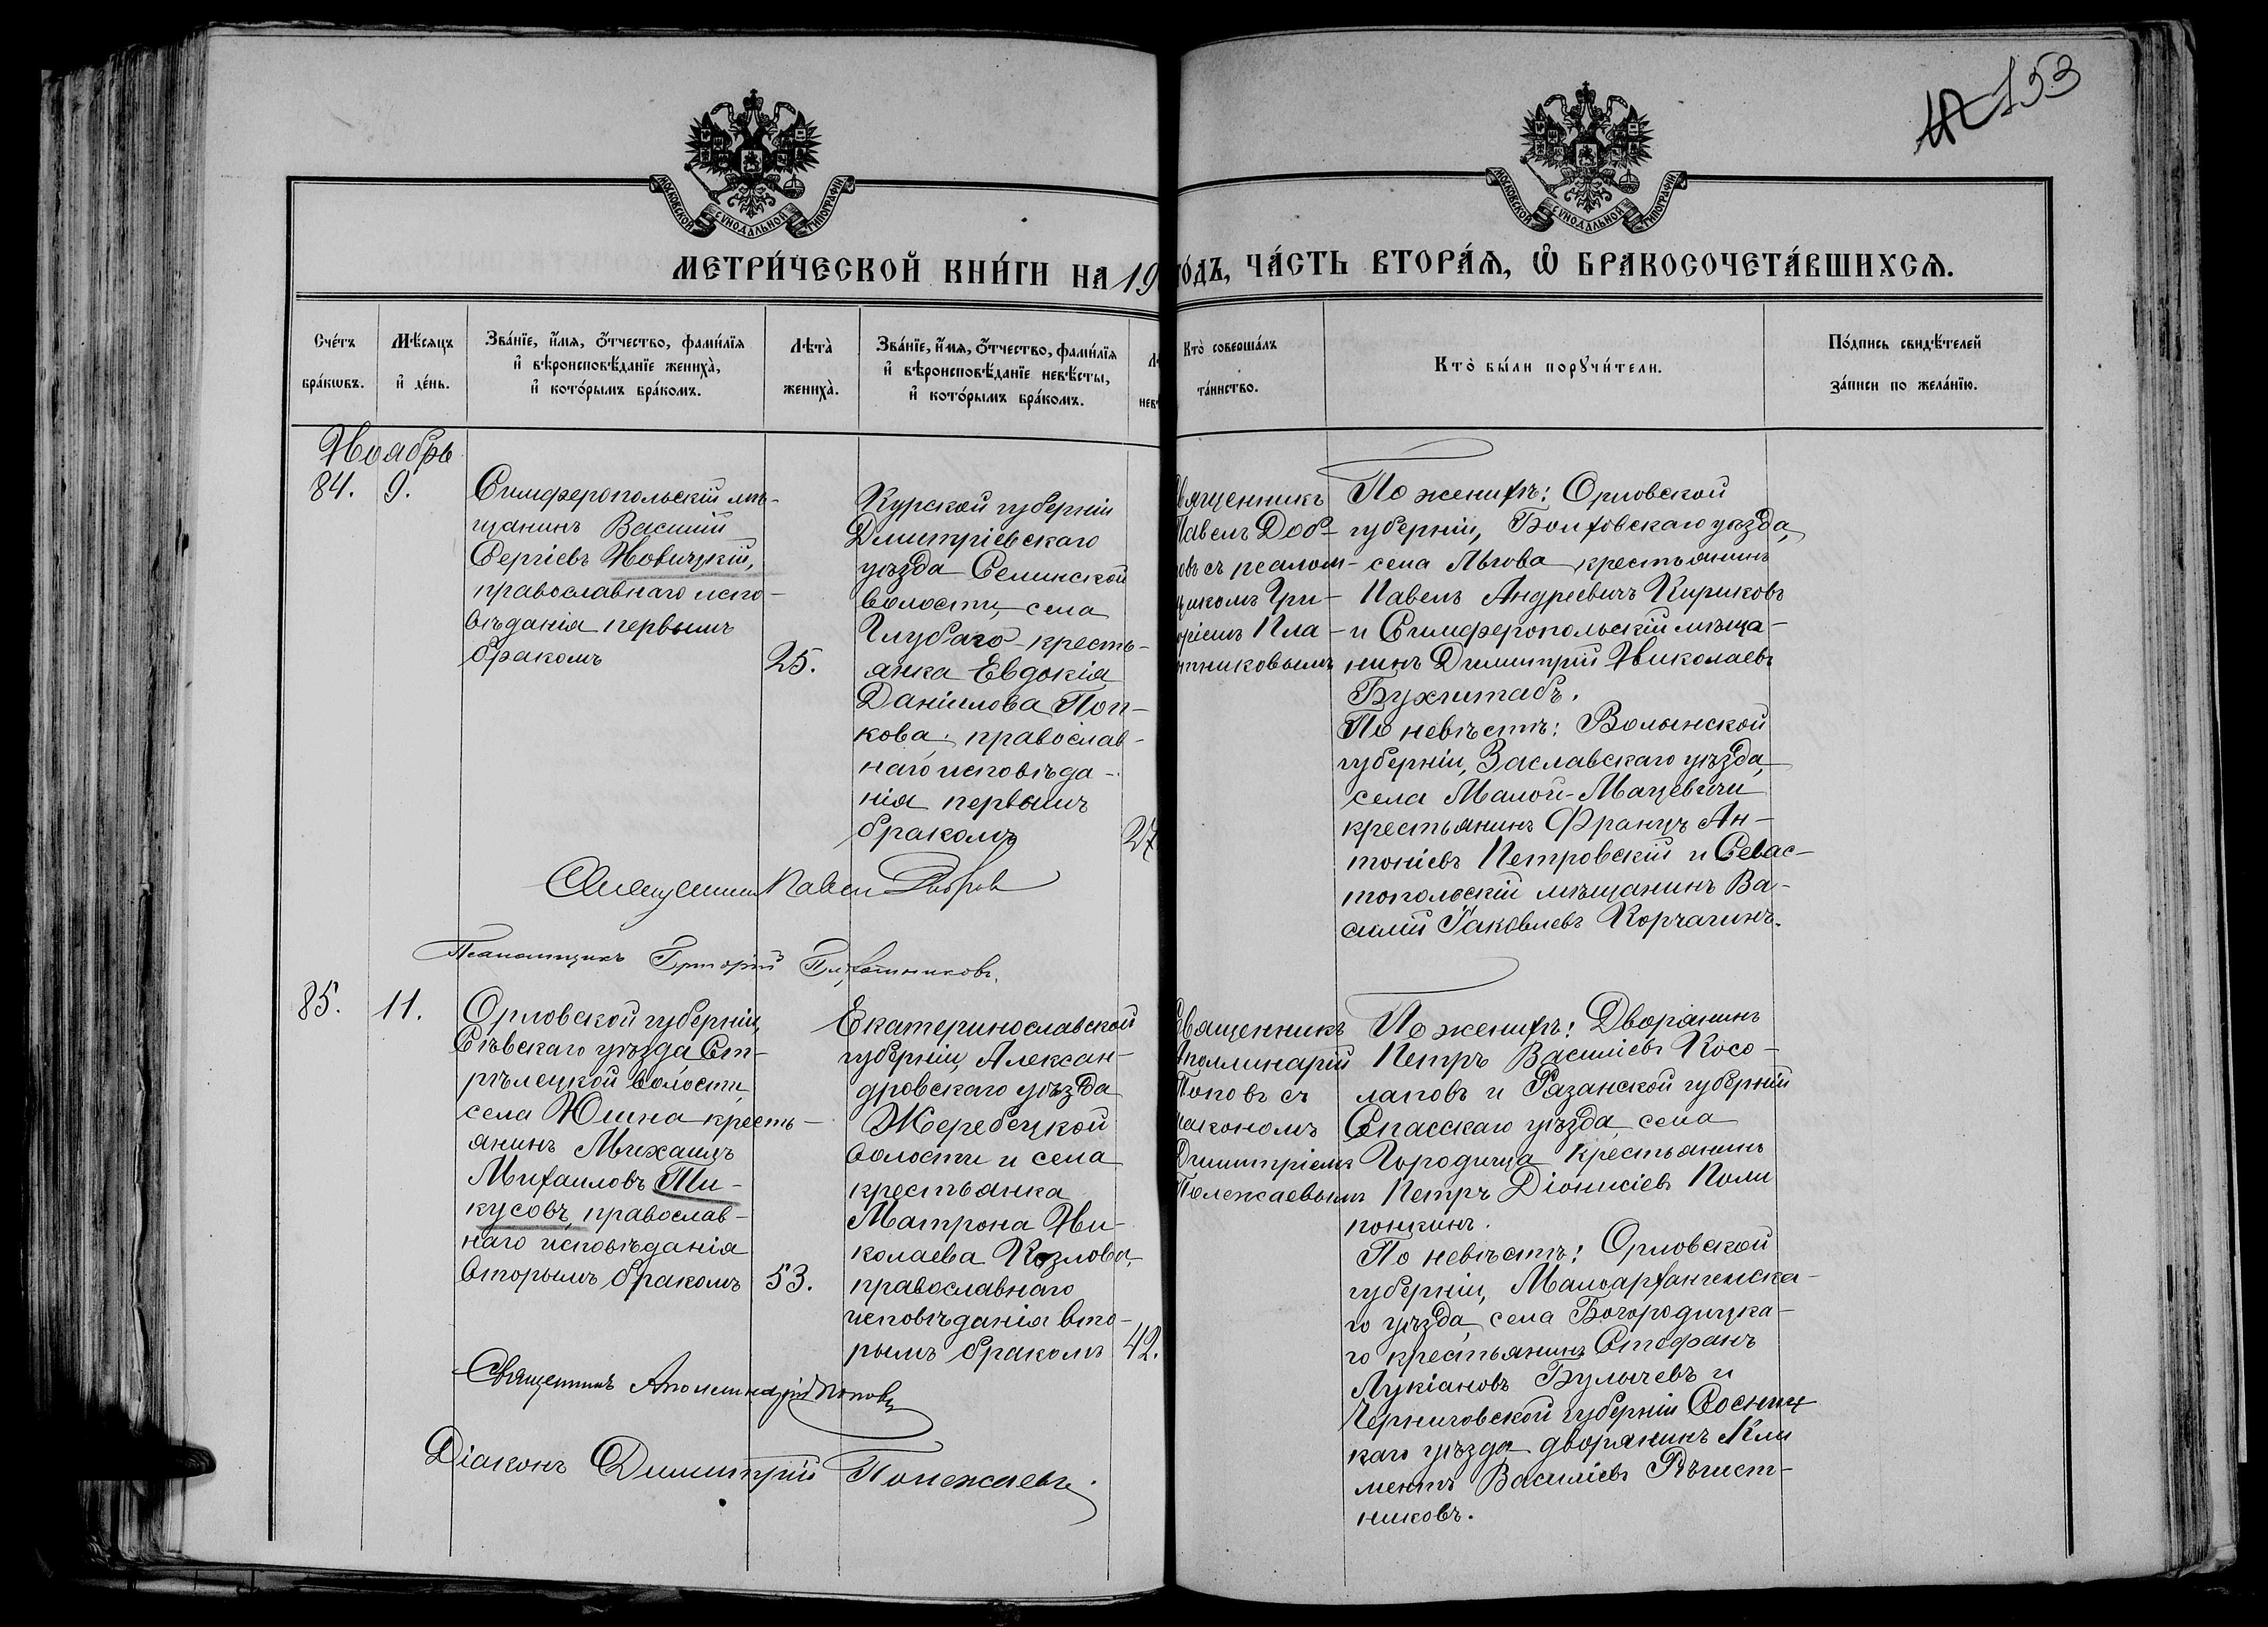 153
МОСКОВСКОЙ СѴНОДАЛЬНОЙ ТИПОГРАФІИ
МОСКОВСКОЙ СѴНОДАЛЬНОЙ ТИПОГРАФІИ
МЕТРИ́ЧЕСКОЙ КНИ́ГИ НА 19
ГО́ДЪ, ЧА́СТЬ ВТОРА́Ѧ, Ѽ БРАКОСОЧЕТА́ВШИХСѦ.
Сче́тъ
бра́кѡвъ.
Мѣ́сяцъ
и҆ де́нь.
Зва́нїе, и҆́мѧ, ѻ҆́тчество, фами́лїѧ
и҆ вѣроисповѣ́данїе жениха̀,
и҆ кото́рымъ бра́комъ.
Лѣта̀
жениха̀.
Зва́нїе, и҆́мѧ, ѻ҆́тчество, фами́лїѧ
и҆ вѣроисповѣ́данїе невѣ́сты,
и҆ кото́рымъ бра́комъ.
Кто̀ соверша́лъ
та́инство.
Кто̀ бы́ли порꙋчи́тели.
По́дпись свидѣ́телей
за́писи по жела́нїю.
Ноябрь
84. 9.
Симферопольскій мѣ-
щанинъ Василій
Сергіевъ Новицкій,
православнаго испо-
вѣданія первымъ
бракомъ
25.
Курской губерніи
Дмитріевскаго
уѣзда Селинской
волости, села
Глубаго кресть-
янка Евдокія
Даніилова Поп-
кова, православ-
наго исповѣда-
нія первымъ
бракомъ
27
Священникъ
Павелъ Доб-
ровъ съ псалом-
щикомъ Гри-
горіемъ Пла-
тниковымъ
По женихѣ: Орловской
губерніи, Болховскаго уѣзда,
села Льгова крестьянинъ
Павелъ Андреевичъ Кириковъ
и Симферопольскій мѣща-
нинъ Димитрій Николаевъ
Бухштабъ.
По невѣстѣ: Волынской
губерніи, Заславскаго уѣзда,
села Малой-Мацевичи
крестьянинъ Францъ Ан-
тоніевъ Петровскій и Севас-
топольскій мѣщанинъ Ва-
силій Іаковлевъ Корчагинъ.
Священникъ Павелъ Добров
Псаломщикъ Григорій
85. 11.
Орловской губерніи,
Сѣвскаго уѣзда Ст-
рѣлецкой волости,
села Юшна кресть-
янинъ Михаилъ
Михаиловъ Пи-
кусовъ, православ-
наго исповѣданія
вторымъ бракомъ
53.
Екатеринославской
губерніи, Алексан-
дровскаго уѣзда
Жеребецкой
волости и села
крестьянка
Матрона Ни-
колаева Козлова,
православнаго
исповѣданія вто-
рымъ бракомъ
42.
Священникъ
Аполлинарій
Поповъ съ
діакономъ
Димитріемъ
Полежаевымъ
По женихѣ: Дворянинъ
Петръ Василіевъ Косо-
лаповъ и Рязанской губерніи
Спасскаго уѣзда села
Городища крестьянинъ
Петръ Діонисіевъ Поли
понкинъ.
По невѣстѣ: Орловской
губерніи, Малоархангельска-
го уѣзда, села Богородицка-
го крестьянинъ Стефанъ
Лукіановъ Булычевъ и
Черниговской губерніи Сосниц
каго уѣзда дворянинъ Кли
ментъ Василіевъ
никовъ.
Священникъ Аполлинарій Поповъ
Діаконъ Димитрій Полежаевъ.